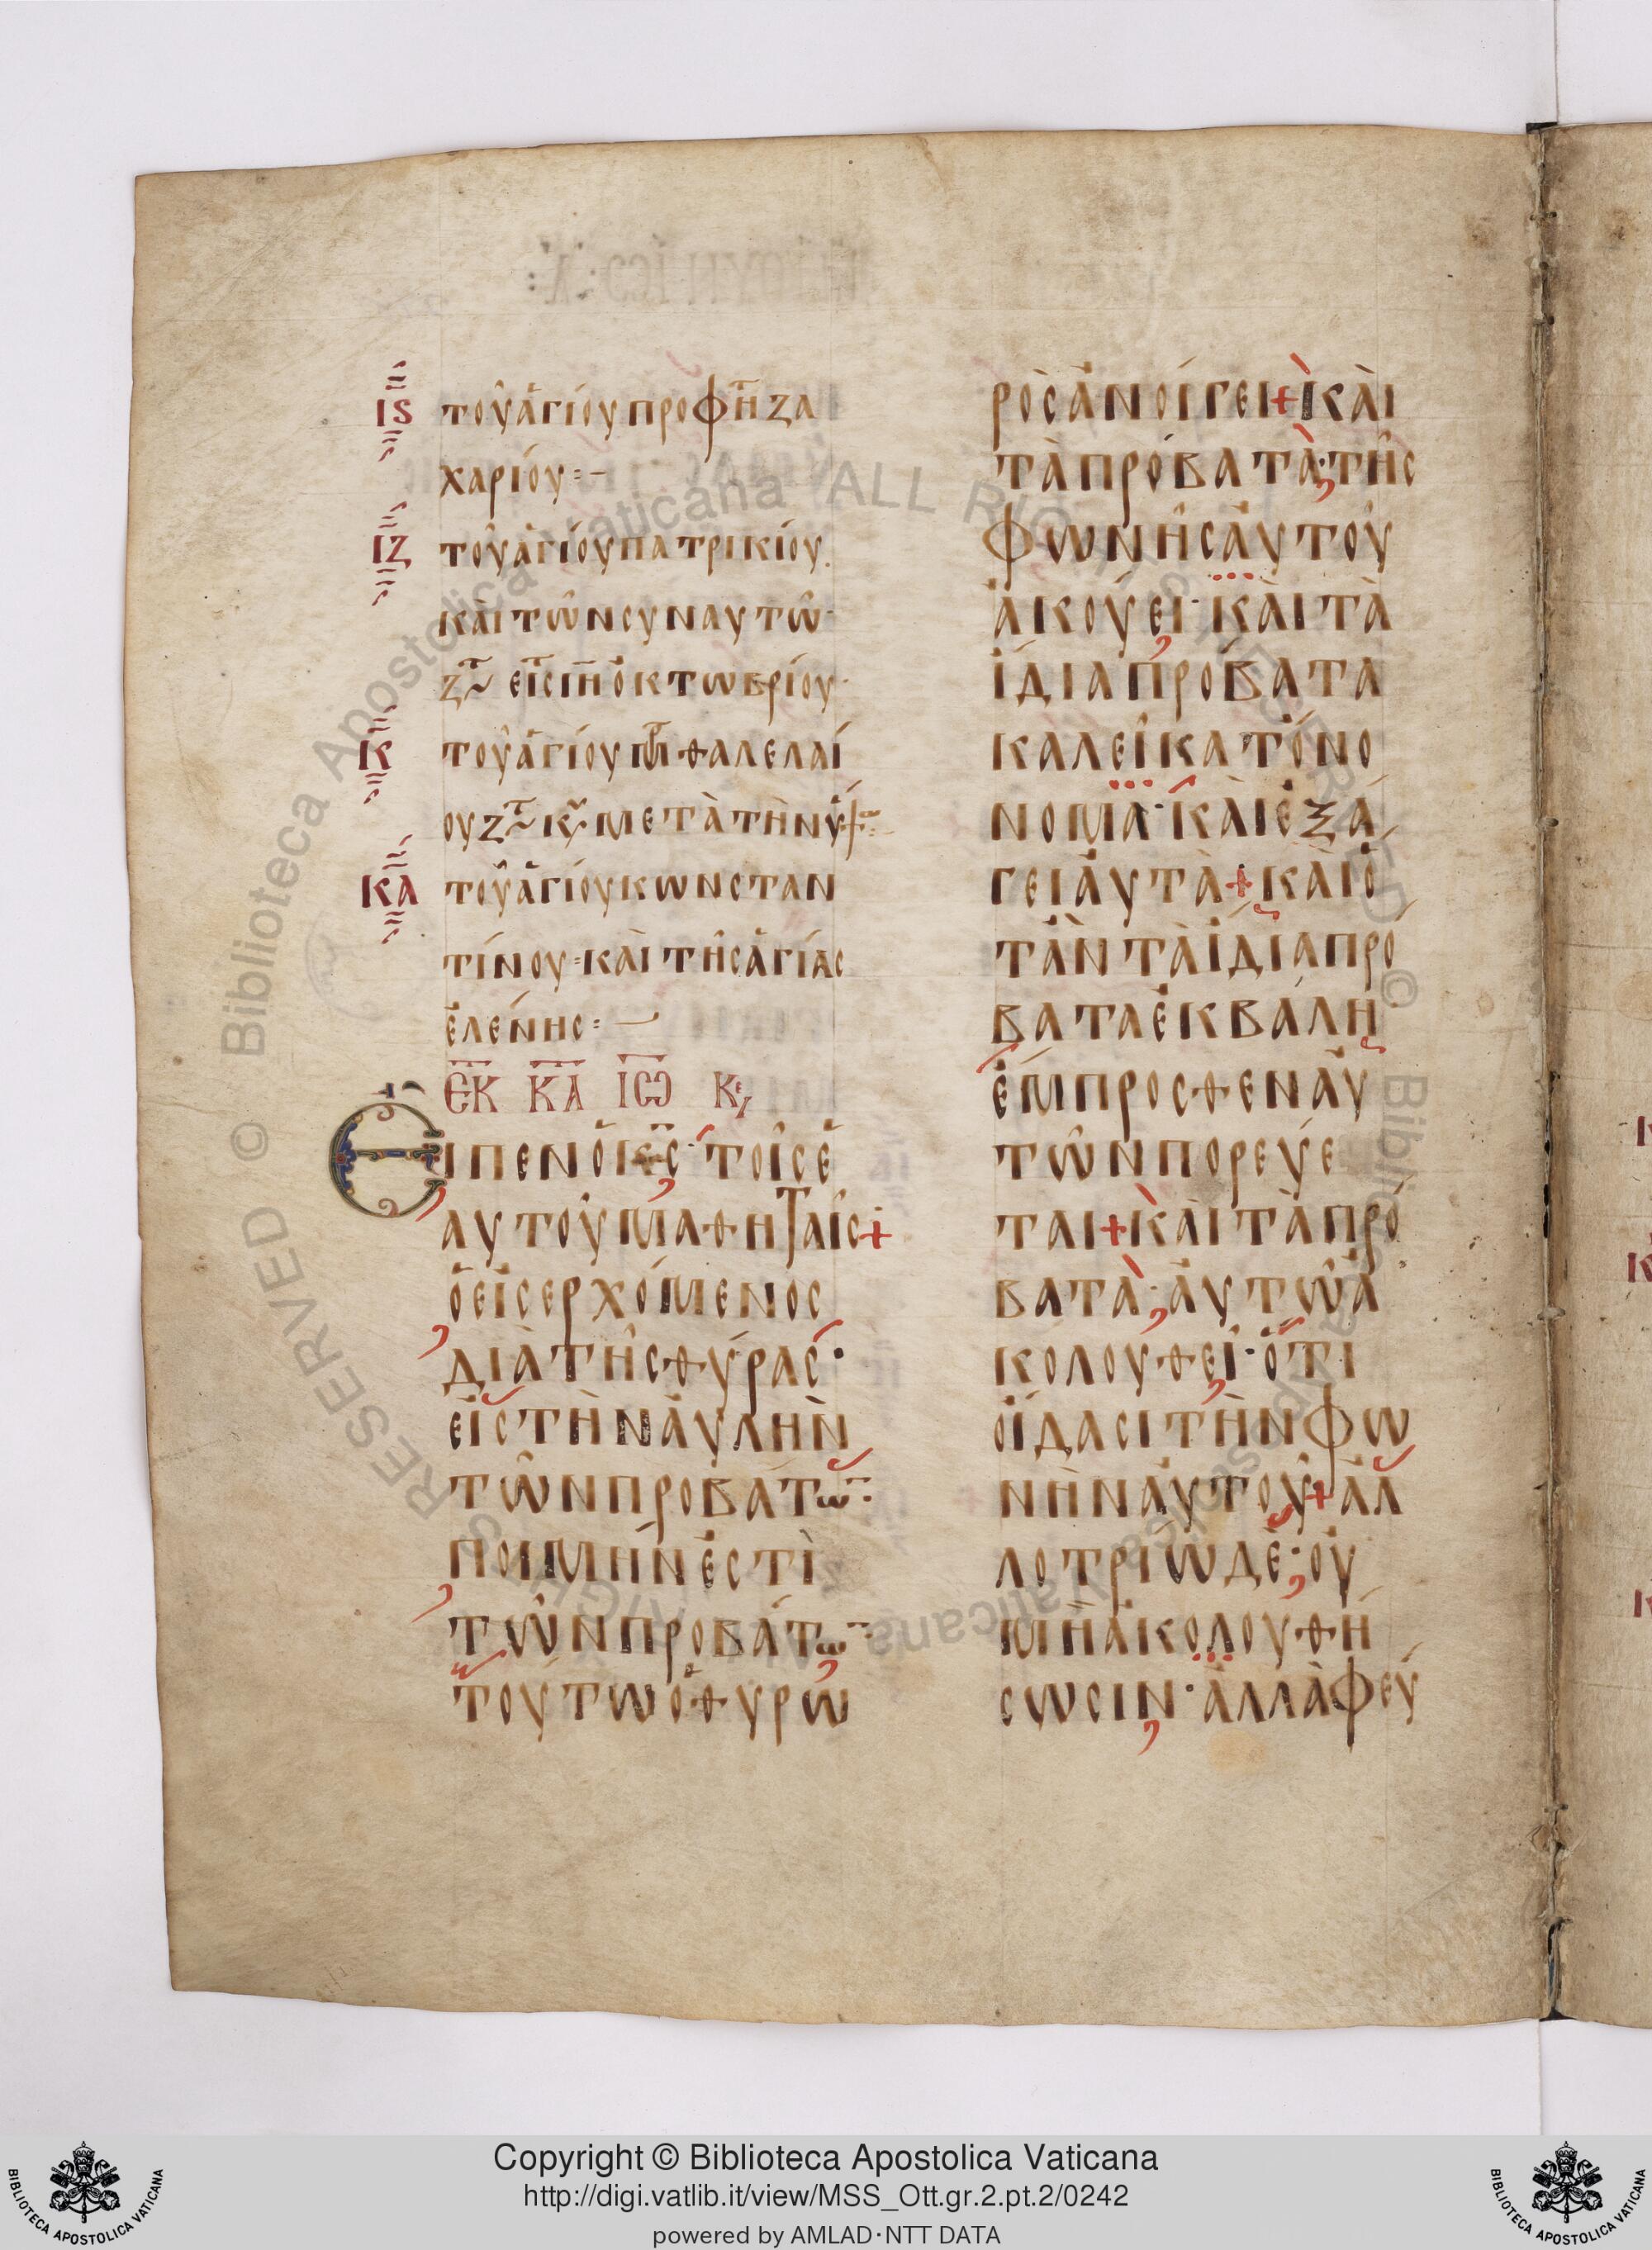 ΙϚ ΤΟΥ ἉΓΊΟΥ ΠΡΟΦΗ͂ ΖΑ
ΧΑΡΊΟΥ:–
ΙΖ ΤΟΥ͂ ἉΓΊΟΥ ΠΑΤΡΙΚΊΟΥ.
ΚΑῚ ΤΩ͂Ν ΣΥΝ ΑΥΤΩ͂·
ΖΤ ΕἸΣ ΙΗ ὈΚΤΩΒΡΊΟΥ·
Κ ΤΟΥ͂ ἉΓΊΟΥ ΜΡ ΘΑΛΕΛΑΊ
ΟΥ ΖΤ ΚΥ ΜΕΤᾺ ΤῊΝ Ν
ΚΑ ΤΟΥ͂ ἉΓΊΟΥ ΚΩΝΣΤΑΝ
ΤΊΝΟΥ· ΚΑῚ ΤΗ͂Σ ἉΓΊΑΣ
ἙΛΈΝΗΣ:–
ἘΚ ΚΑ ΙΩ ΚΕ
ΕἾΠΕΝ Ὁ ΚΣ· ΤΟΙ͂Σ Ἑ
ΑΥΤΟΥ͂ ΜΑΘΗΤΑΙ͂Σ+
Ὁ ΕἸΣΕΡΧΌΜΕΝΟΣ
ΔΙᾺ ΤΗ͂Σ ΘΎΡΑΣ·
ΕἸΣ ΤῊΝ ἈΥΛῊΝ
ΤΩ͂Ν ΠΡΟΒΆΤΩ:
ΠΟΙΜΉΝ ἘΣΤῚ
ΤΩ͂Ν ΠΡΟΒΆΤΩ:
ΤΟΎΤΩ Ὁ ΘΥΡΩ
ΡῸΣ ἈΝΟΊΓΕΙ+ ΚΑῚ
ΤᾺ ΠΡΌΒΑΤΑ· ΤΗ͂Σ
ΦΩΝΗ͂Σ ἈΥΤΟΥ͂
ἈΚΟΎΕΙ· ΚΑῚ ΤᾺ
ἼΔΙΑ ΠΡΌΒΑΤΑ
ΚΑΛΕΙ͂ ΚΑΤΌΝΟ
ΝΟΜΑ· ΚΑῚ ἘΞΆ
ΓΕΙ ἈΥΤᾺ+ ΚΑῚ Ὁ
ΤᾺΝ ΤᾺ ἼΔΙΑ ΠΡΌ
ΒΑΤΑ ἘΚΒΆΛΗ
ἜΜΠΡΟΣΘΕΝ ἈΥ
ΤΩ͂Ν ΠΟΡΕΎΕ
ΤΑΙ+ ΚΑῚ ΤᾺ ΠΡΌ
ΒΑΤΑ· ἈΥΤΩ͂ Ἀ
ΚΟΛΟΥΘΕΙ͂· ὍΤΙ
ΟἼΔΑΣΙ ΤῊΝ ΦΩ
ΝῊΝ ἈΥΤΟΥ͂+ ἈΛ
ΛΟΤΡΊΩ ΔΈ· ΟΥ̓
ΜῊ ἈΚΟΛΟΥΘΉ
ΣΩΣΙΝ· ἈΛΛᾺ ΦΕΎ
Copyright © Biblioteca Apostolica Vaticana
http://digi.vatlib.it/view/MSS_Ott.gr.2.pt.2/0242
powered by AMLAD·NTT DATA
BIBLIOTECA APOSTOLICA VATICANA
BIBLIOTECA APOSTOLICA VATICANA